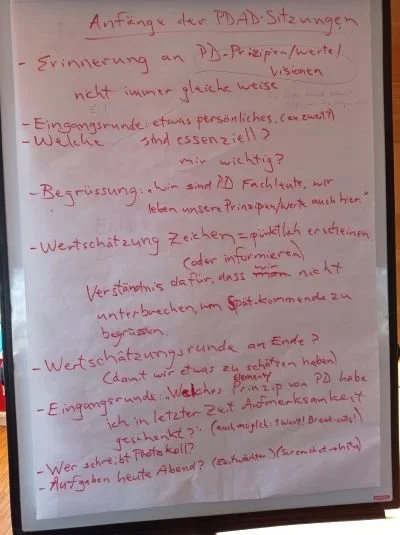 Anfänge der PDAD-Sitzungen
- Erinnerung an PD-Prizipien/Werte/
Visionen
nicht immer gleiche weise
- Eingangsrunde: etwas persönliches. (zu zweit?)
- Welche sind essenziell?
mir wichtig?
- Begrüssung: "Wir sind PD Fachleute, wir
leben unsere Prinzipien/Werte auch hier."
- Wertschätzung Zeichen = pünktlich erscheinen
(oder informieren)
Verständnis dafür, dass wir man nicht
unterbrechen, um Spät-kommende zu
begrüssen.
- Wertschätzungsrunde an Ende?
(damit wir etwas zu schätzen haben)
- Eingangsrunde: "Welches Prinzip von PD habe
element
ich in letzter Zeit Aufmerksamkeit
geschenkt?". (auch möglich: 1 Wert! Break-outs!)
- Wer schreibt Protokoll?
- Aufgaben heute Abend? (Zeitwächter)